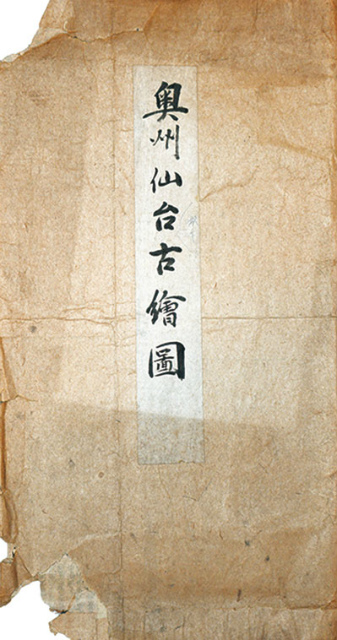 奥州仙台古繪圖